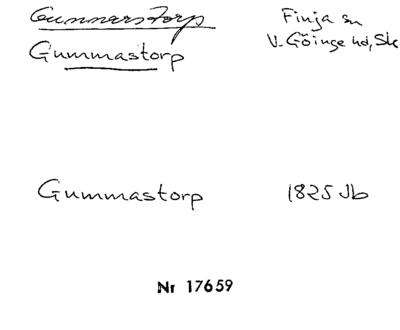 Gunnarstorp
Finja sn
Gummastorp
V. Göinge hd, Sk
Gummastorp
1825 Jb
Nr 17659